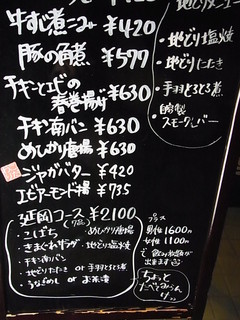 牛すじ煮こみ ¥420
豚の角煮 ¥577
チキンとエビの
春巻揚げ ¥630
チキン南バン ¥630
めしかり唐揚 ¥630
ニジャがバター ¥420
エビアーモンド揚 ¥735
地どりメニュー
・地どり塩焼
・地どりたたき
・手羽とろとろ煮
自家製
スモークレバー
延岡コース ¥2100
(7品)
・こばち
・きまぐれサラダ
・チキン南バン
・地どりたたき or 手羽とろとろ煮
・うなぎめし or お茶漬
・めしかり唐揚
・地どり塩焼
プラス
男性 1600円
女性 1100円
で 飲み放題が
出来ます
ちょっと